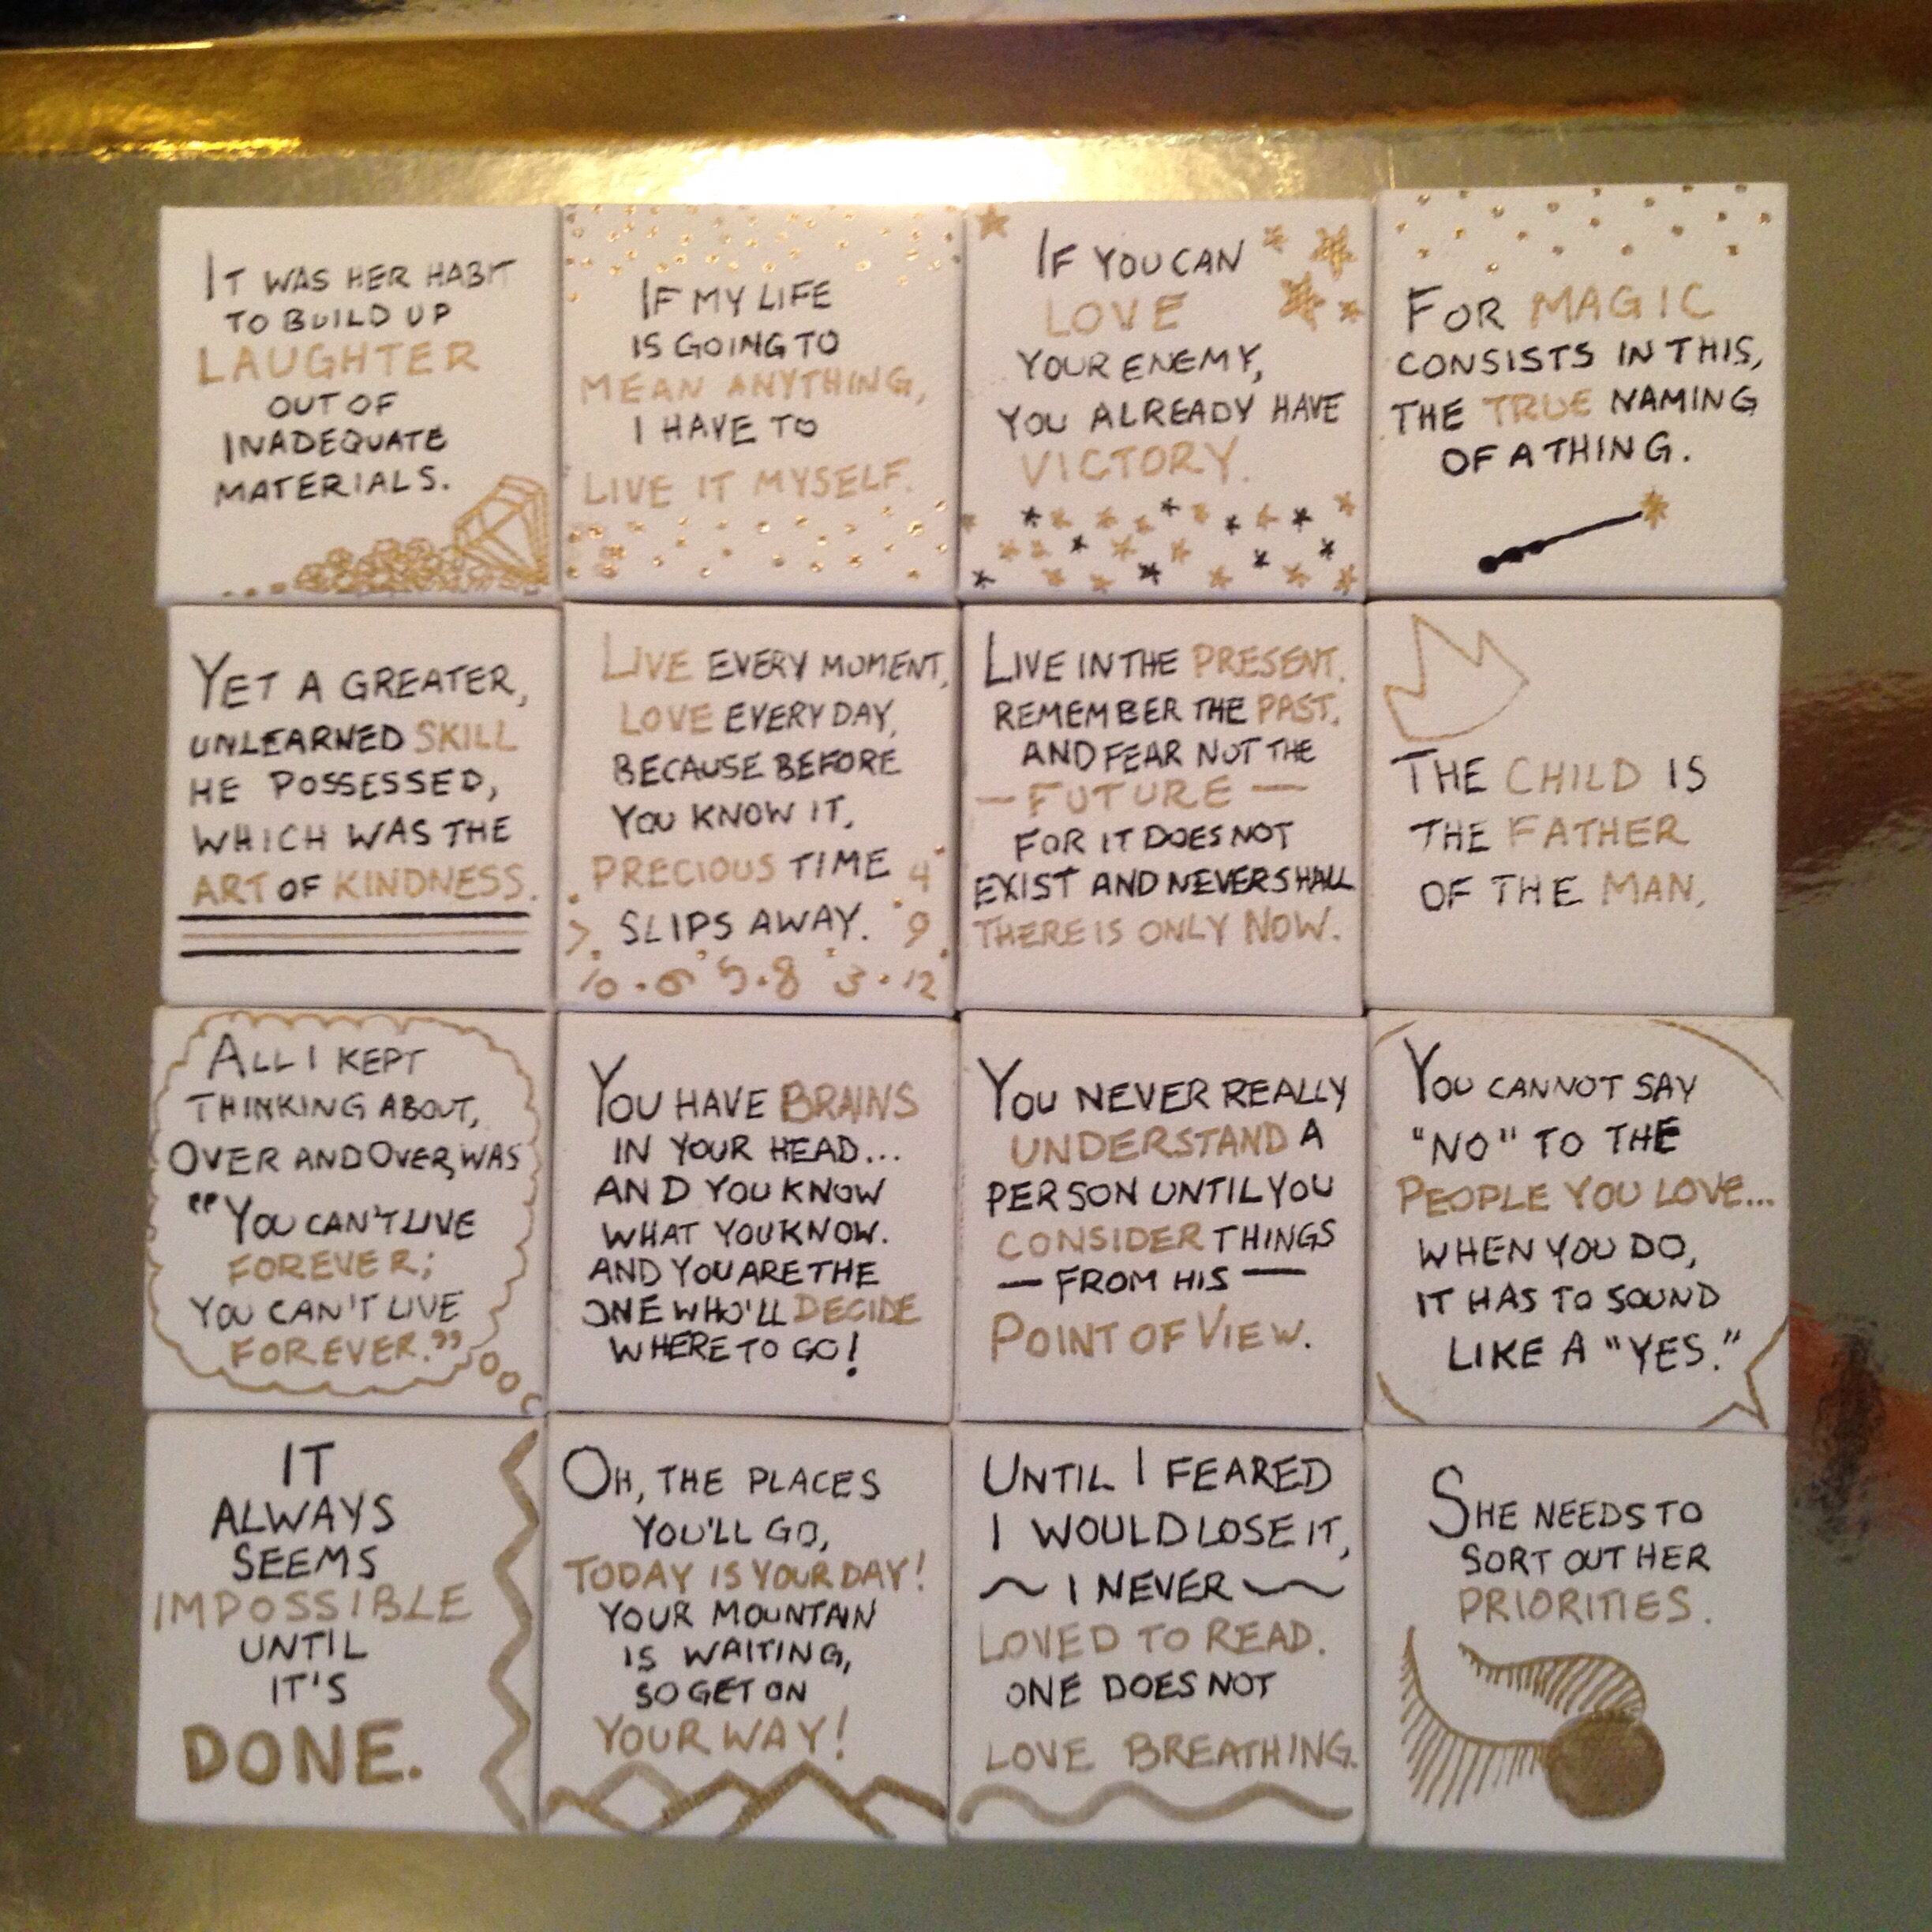 IT WAS HER HABIT
TO BUILD UP
LAUGHTER
OUT OF
INADEQUATE
MATERIALS.
IF MY LIFE
IS GOING TO
MEAN ANYTHING,
I HAVE TO
LIVE IT MYSELF.
IF YOU CAN
LOVE
YOUR ENEMY,
YOU ALREADY HAVE
VICTORY.
FOR MAGIC
CONSISTS IN THIS,
THE TRUE NAMING
OF A THING.
YET A GREATER,
UNLEARNED SKILL
HE POSSESSED,
WHICH WAS THE
ART OF KINDNESS.
LIVE EVERY MOMENT,
LOVE EVERY DAY,
BECAUSE BEFORE
YOU KNOW IT,
PRECIOUS TIME 4
7 SLIPS AWAY. 9
10 · 6 5 · 8 3 · 12
LIVE IN THE PRESENT.
REMEMBER THE PAST.
AND FEAR NOT THE
— FUTURE —
FOR IT DOES NOT
EXIST AND NEVER SHALL
THERE IS ONLY NOW.
THE CHILD IS
THE FATHER
OF THE MAN.
ALL I KEPT
THINKING ABOUT,
OVER AND OVER, WAS
"YOU CAN'T LIVE
FOREVER;
YOU CAN'T LIVE
FOREVER."
YOU HAVE BRAINS
IN YOUR HEAD...
AND YOU KNOW
WHAT YOU KNOW.
AND YOU ARE THE
ONE WHO'LL DECIDE
WHERE TO GO!
YOU NEVER REALLY
UNDERSTAND A
PERSON UNTIL YOU
CONSIDER THINGS
— FROM HIS —
POINT OF VIEW.
YOU CANNOT SAY
"NO" TO THE
PEOPLE YOU LOVE...
WHEN YOU DO,
IT HAS TO SOUND
LIKE A "YES."
IT
ALWAYS
SEEMS
IMPOSSIBLE
UNTIL
IT'S
DONE.
OH, THE PLACES
YOU'LL GO,
TODAY IS YOUR DAY!
YOUR MOUNTAIN
IS WAITING,
SO GET ON
YOUR WAY!
UNTIL I FEARED
I WOULD LOSE IT,
~ I NEVER ~
LOVED TO READ.
ONE DOES NOT
LOVE BREATHING.
SHE NEEDS TO
SORT OUT HER
PRIORITIES.